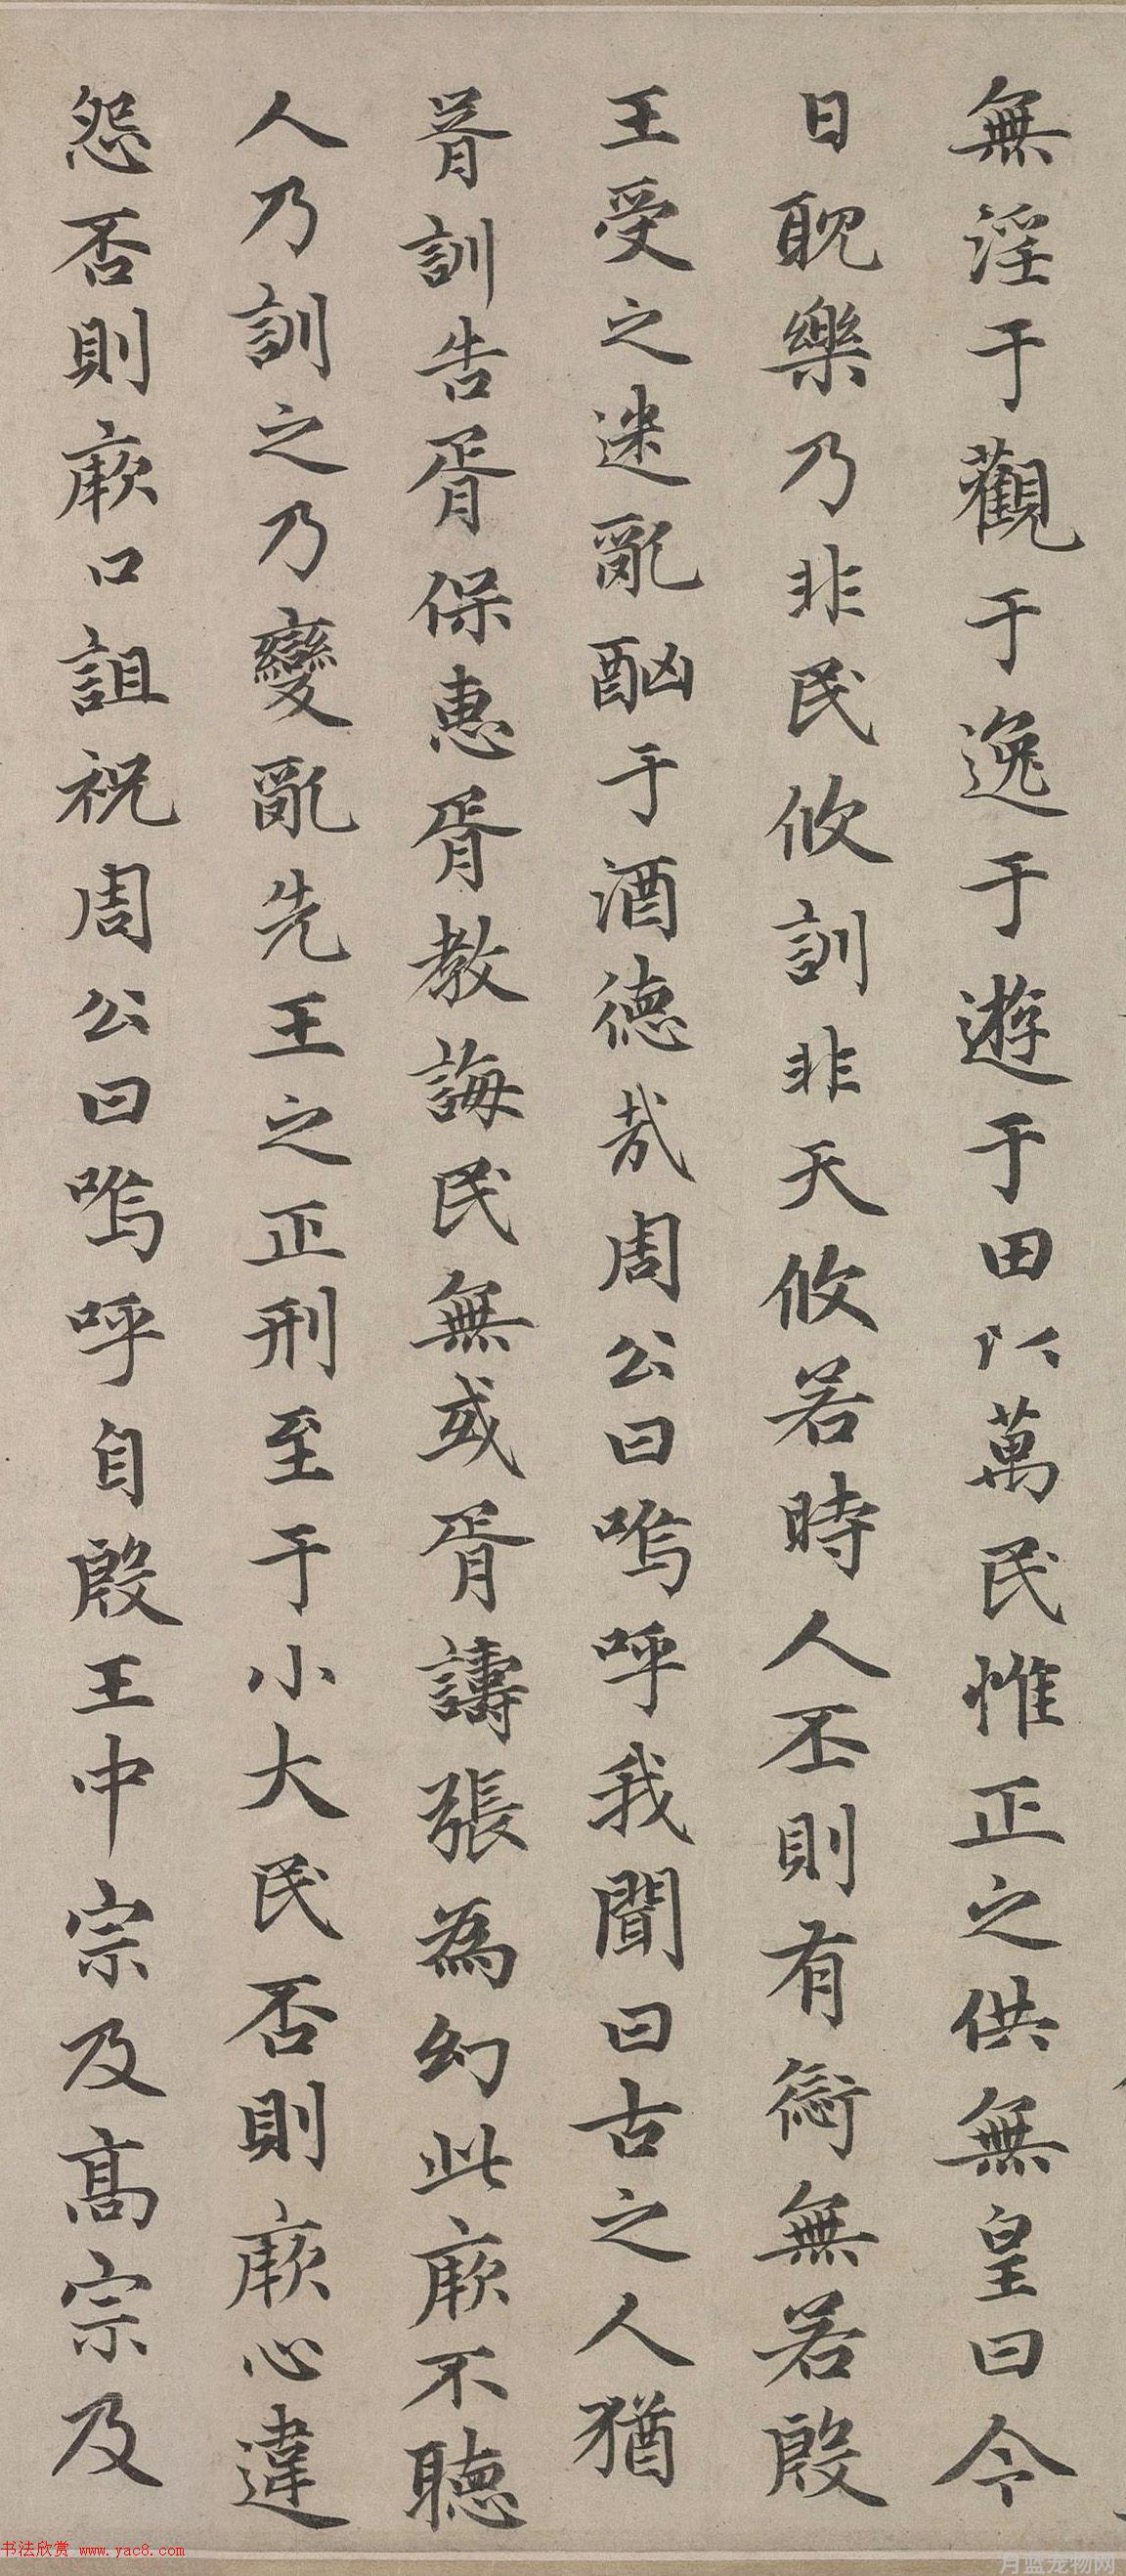 無淫于觀于逸于遊于田以萬民惟正之供無皇曰今
日耽樂乃非民攸訓非天攸若時人丕則有愆無若殷
王受之迷亂酗于酒德哉周公曰嗚呼我聞曰古之人猶
胥訓告胥保惠胥教誨民無或胥譸張為幻此厥不聽
人乃訓之乃變亂先王之正刑至于小大民否則厥心違
怨否則厥口詛祝周公曰嗚呼自殷王中宗及高宗及
书法欣赏 www.yac8.com
月蓝宠物网